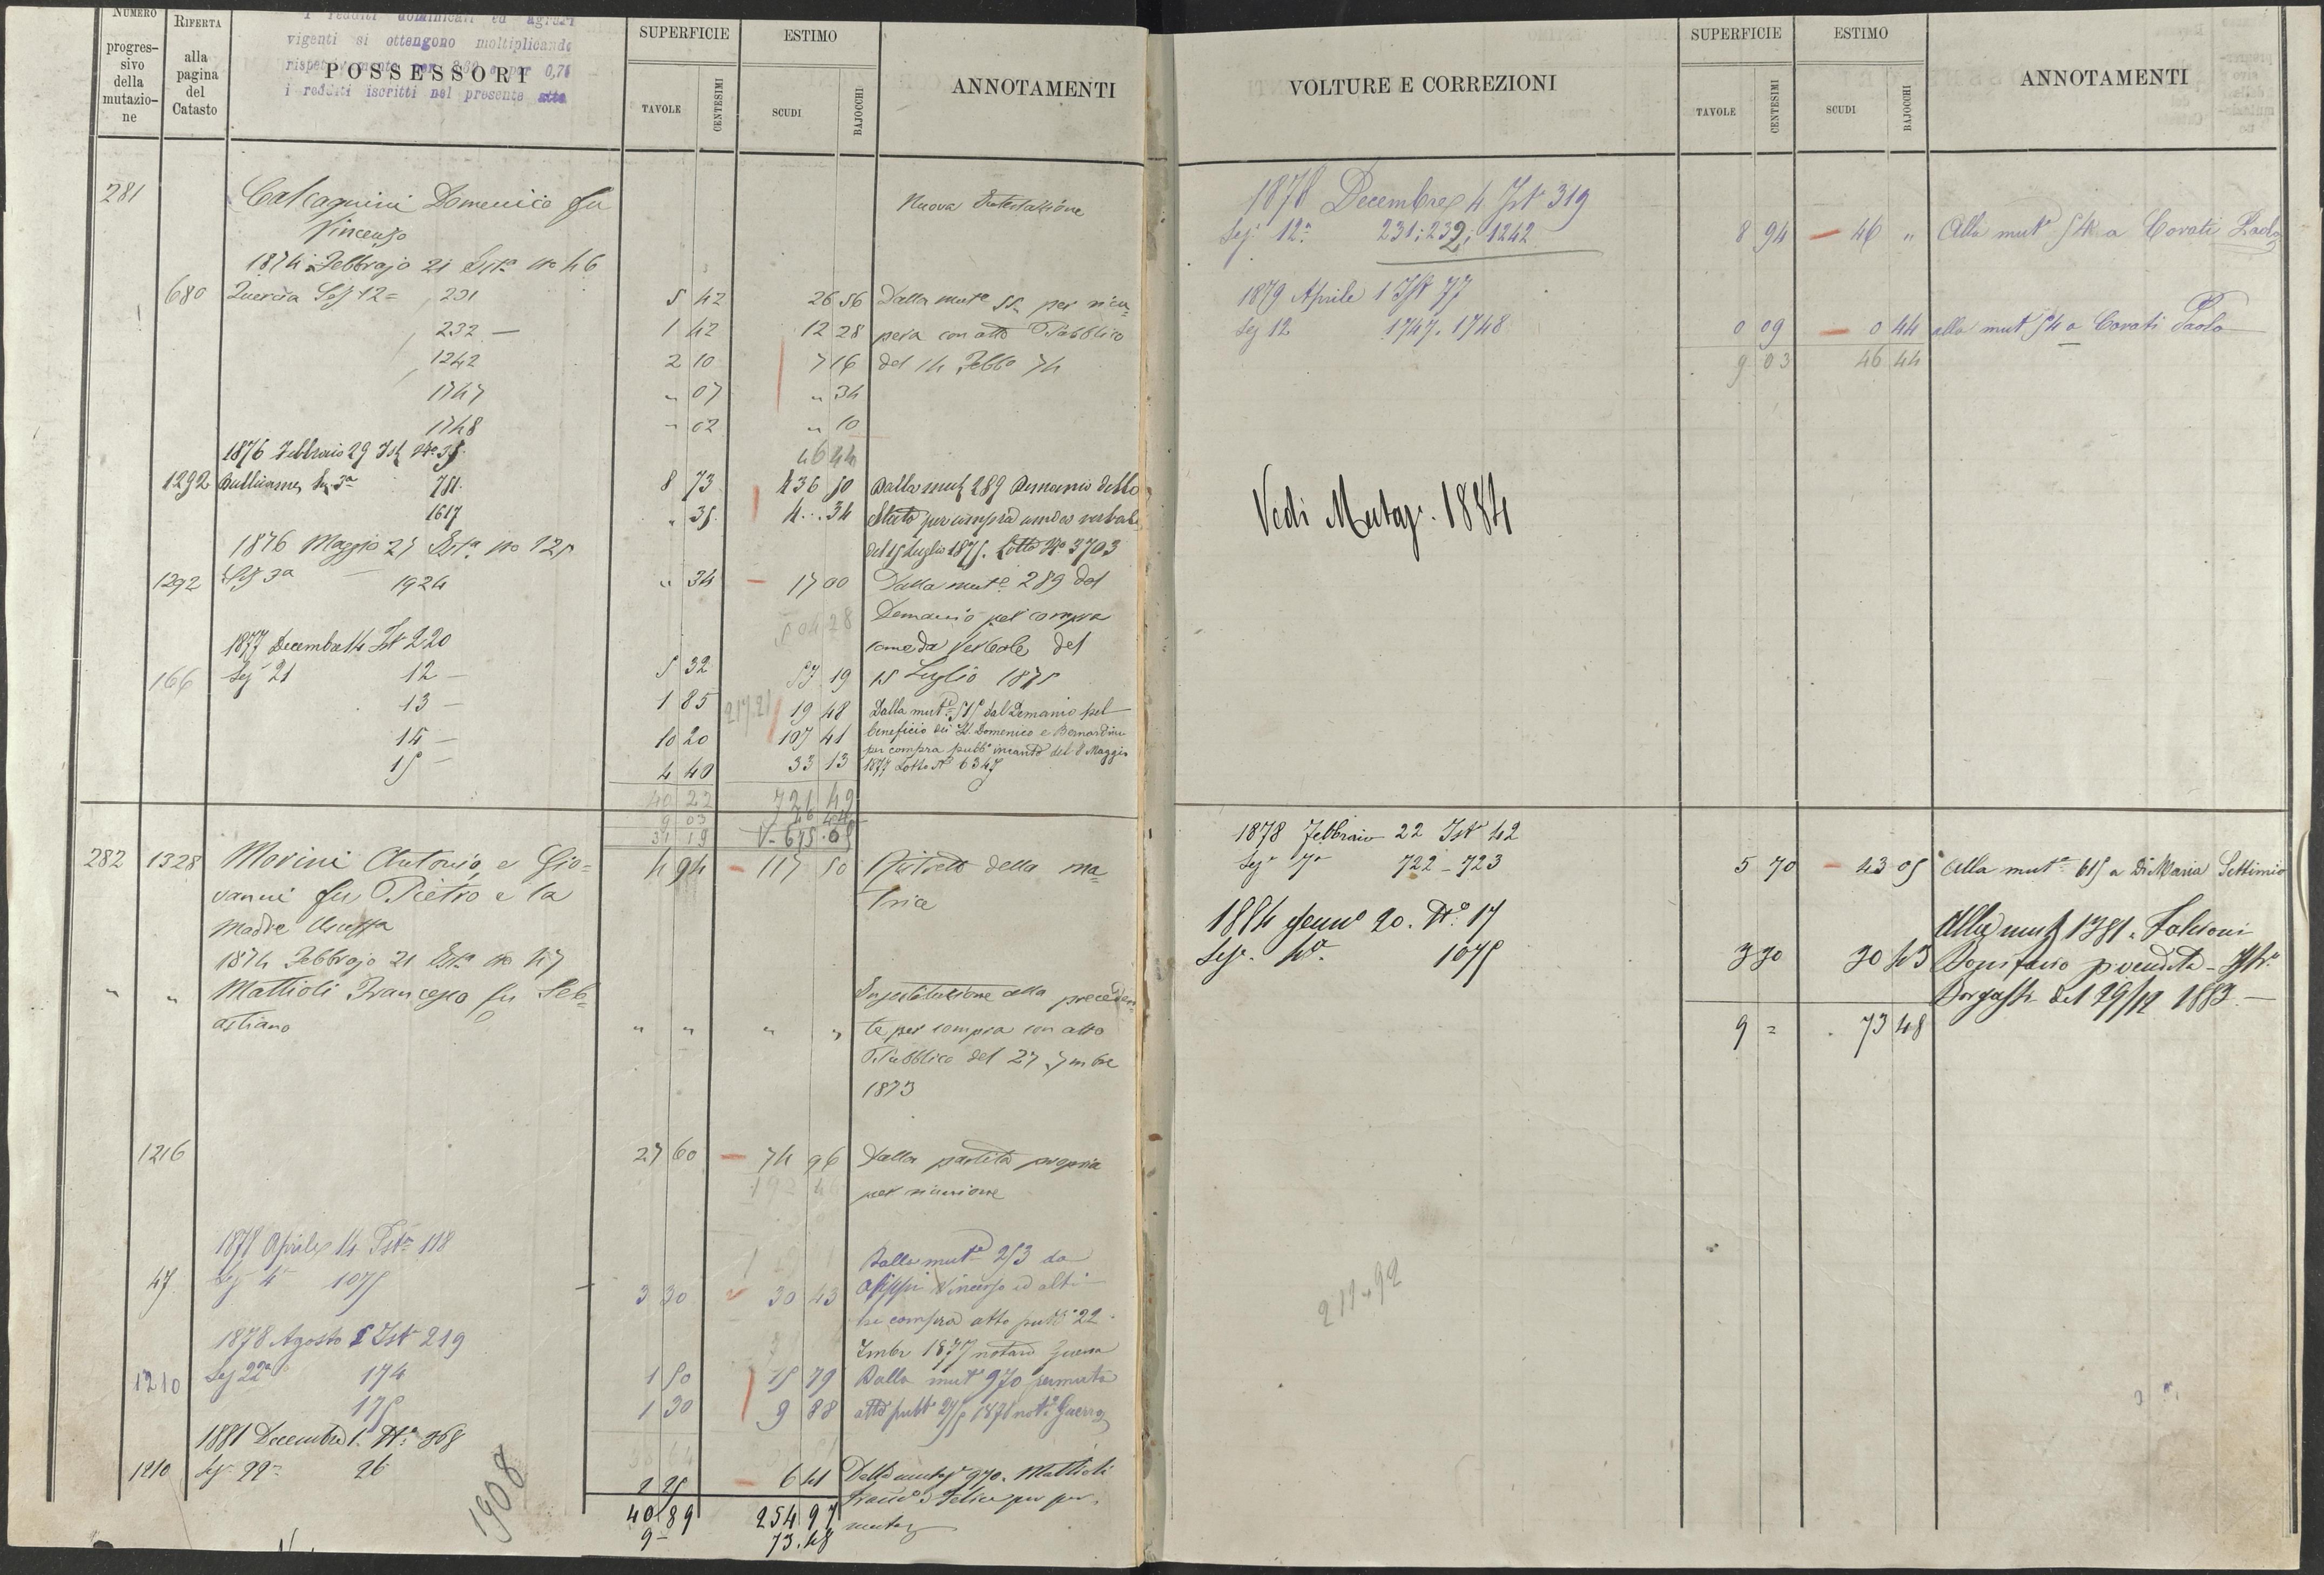 NUMERO
progres-
sivo
della
mutazio-
ne
RIFERTA
alla
pagina
del
Catasto
I redditi dominicali ed agrari
vigenti si ottengono moltiplicando
per 0,75
i redditi iscritti nel presente atto
POSSESSORI
SUPERFICIE
TAVOLE
CENTESIMI
ESTIMO
SCUDI
BAJOCCHI
ANNOTAMENTI
281 Calcagnini Domenico fu Nuova Intestazione
Vincenzo
1874 Febbrajo 21 Ista no 46
680 Quercia Sez 12= 231 5 42 26 56 Dalla muta 55 per ricu-
232 — 1 42 12 28 pera con atto Pubblico
1242 2 10 7 16 del 14 Febbo 74
1747 " 07 " 34
1748 " 02 " 10
1876 Febbraio 29 Ist No 35 46 44
1292 Bullicame, Sez 3a 751 8 73 436 50 Dalla mut 289 Demanio dello
1617 " 35 4 .. 34 Stato per compra come da verbale
del 15 Luglio 1875. Lotto No 3703
1876 Maggio 25 Ista no 125
1292 Sez 3a — 1924 " 34 — 17 00 Dalla muta 289 dal
504 28 Demanio per compra
1877 Decembre 14 Ist 220 come da Verbale del
166 Sez 21 12 — 5 32 57 19 15 Luglio 1875
13 — 1 85 217.21 19 48 Dalla muta 515 dal Demanio pel
14 — 10 20 107 41 beneficio dei SS. Domenico e Bernardino
per compra pubbo incanto del 8 Maggio
15 — 4 40 33 13 1877 Lotto No 6347
40 22 721 49
9 03 46 44
31 19 V- 675.05
282 1328 Morini Antonio e Gio- 4 94 — 117 50 Ristretto della ma-
vanni fu Pietro e la trice
Madre
1874 Febbrajo 21 Ista no 47
" " Mattioli Francesco fu Seb- Sostituzione alla preceden-
astiano " " " " te per compra con atto
Pubblico del 27 7mbre
1873
1216 27 60 — 74 96 Dalla partita propria
192 46 per riunione
1878 Aprile 14 Ista 118
Dalla muta 253 da
47 Sez 4a 1075 3 30 30 43 Vincenzo ed altri
per compra atto pubb. 22
1878 Agosto 5 Ist 219 Xmbr 1877 notaro Guerra
1210 Sez 22a 174 1 50 15 79 Dalla mut 970 permuta
175 1 30 9 88 atto pubb 1878 nota Guerra
1881 Decembre 1. Ista 368
1210 Sez. 22a 26 2 25 — 6 41 Dalla mutaz 970. Mattioli
1908 Franco e Felice per per-
40 89 254 97 mutaz
9 — 73.48
VOLTURE E CORREZIONI
SUPERFICIE
TAVOLE
CENTESIMI
ESTIMO
SCUDI
BAJOCCHI
ANNOTAMENTI
1878 Decembre 4 Ist 319
Sez 12a 231; 232; 1242 8 94 — 46 " Alla muta 54 a Corati Paolo
1879 Aprile 1 Ist 77
Sez 12 1747. 1748 0 09 — 0 44 alla mut 54 a Corati Paolo
9 03 46 44
Vedi Mutaz. 1884
1878 Febbraio 22 Ist 42
Seza 7a 722 - 723 5 70 — 43 05 Alla muta 615 a Di Maria Settimio
1884 Genno 20. No 17 Alla mut 1381. Falcioni
Seza. 4a. 1075 3 30 30 43 Bonifacio p. vendita -
Borgassi del 29/12 1883. —
9 = 73 48
211.92